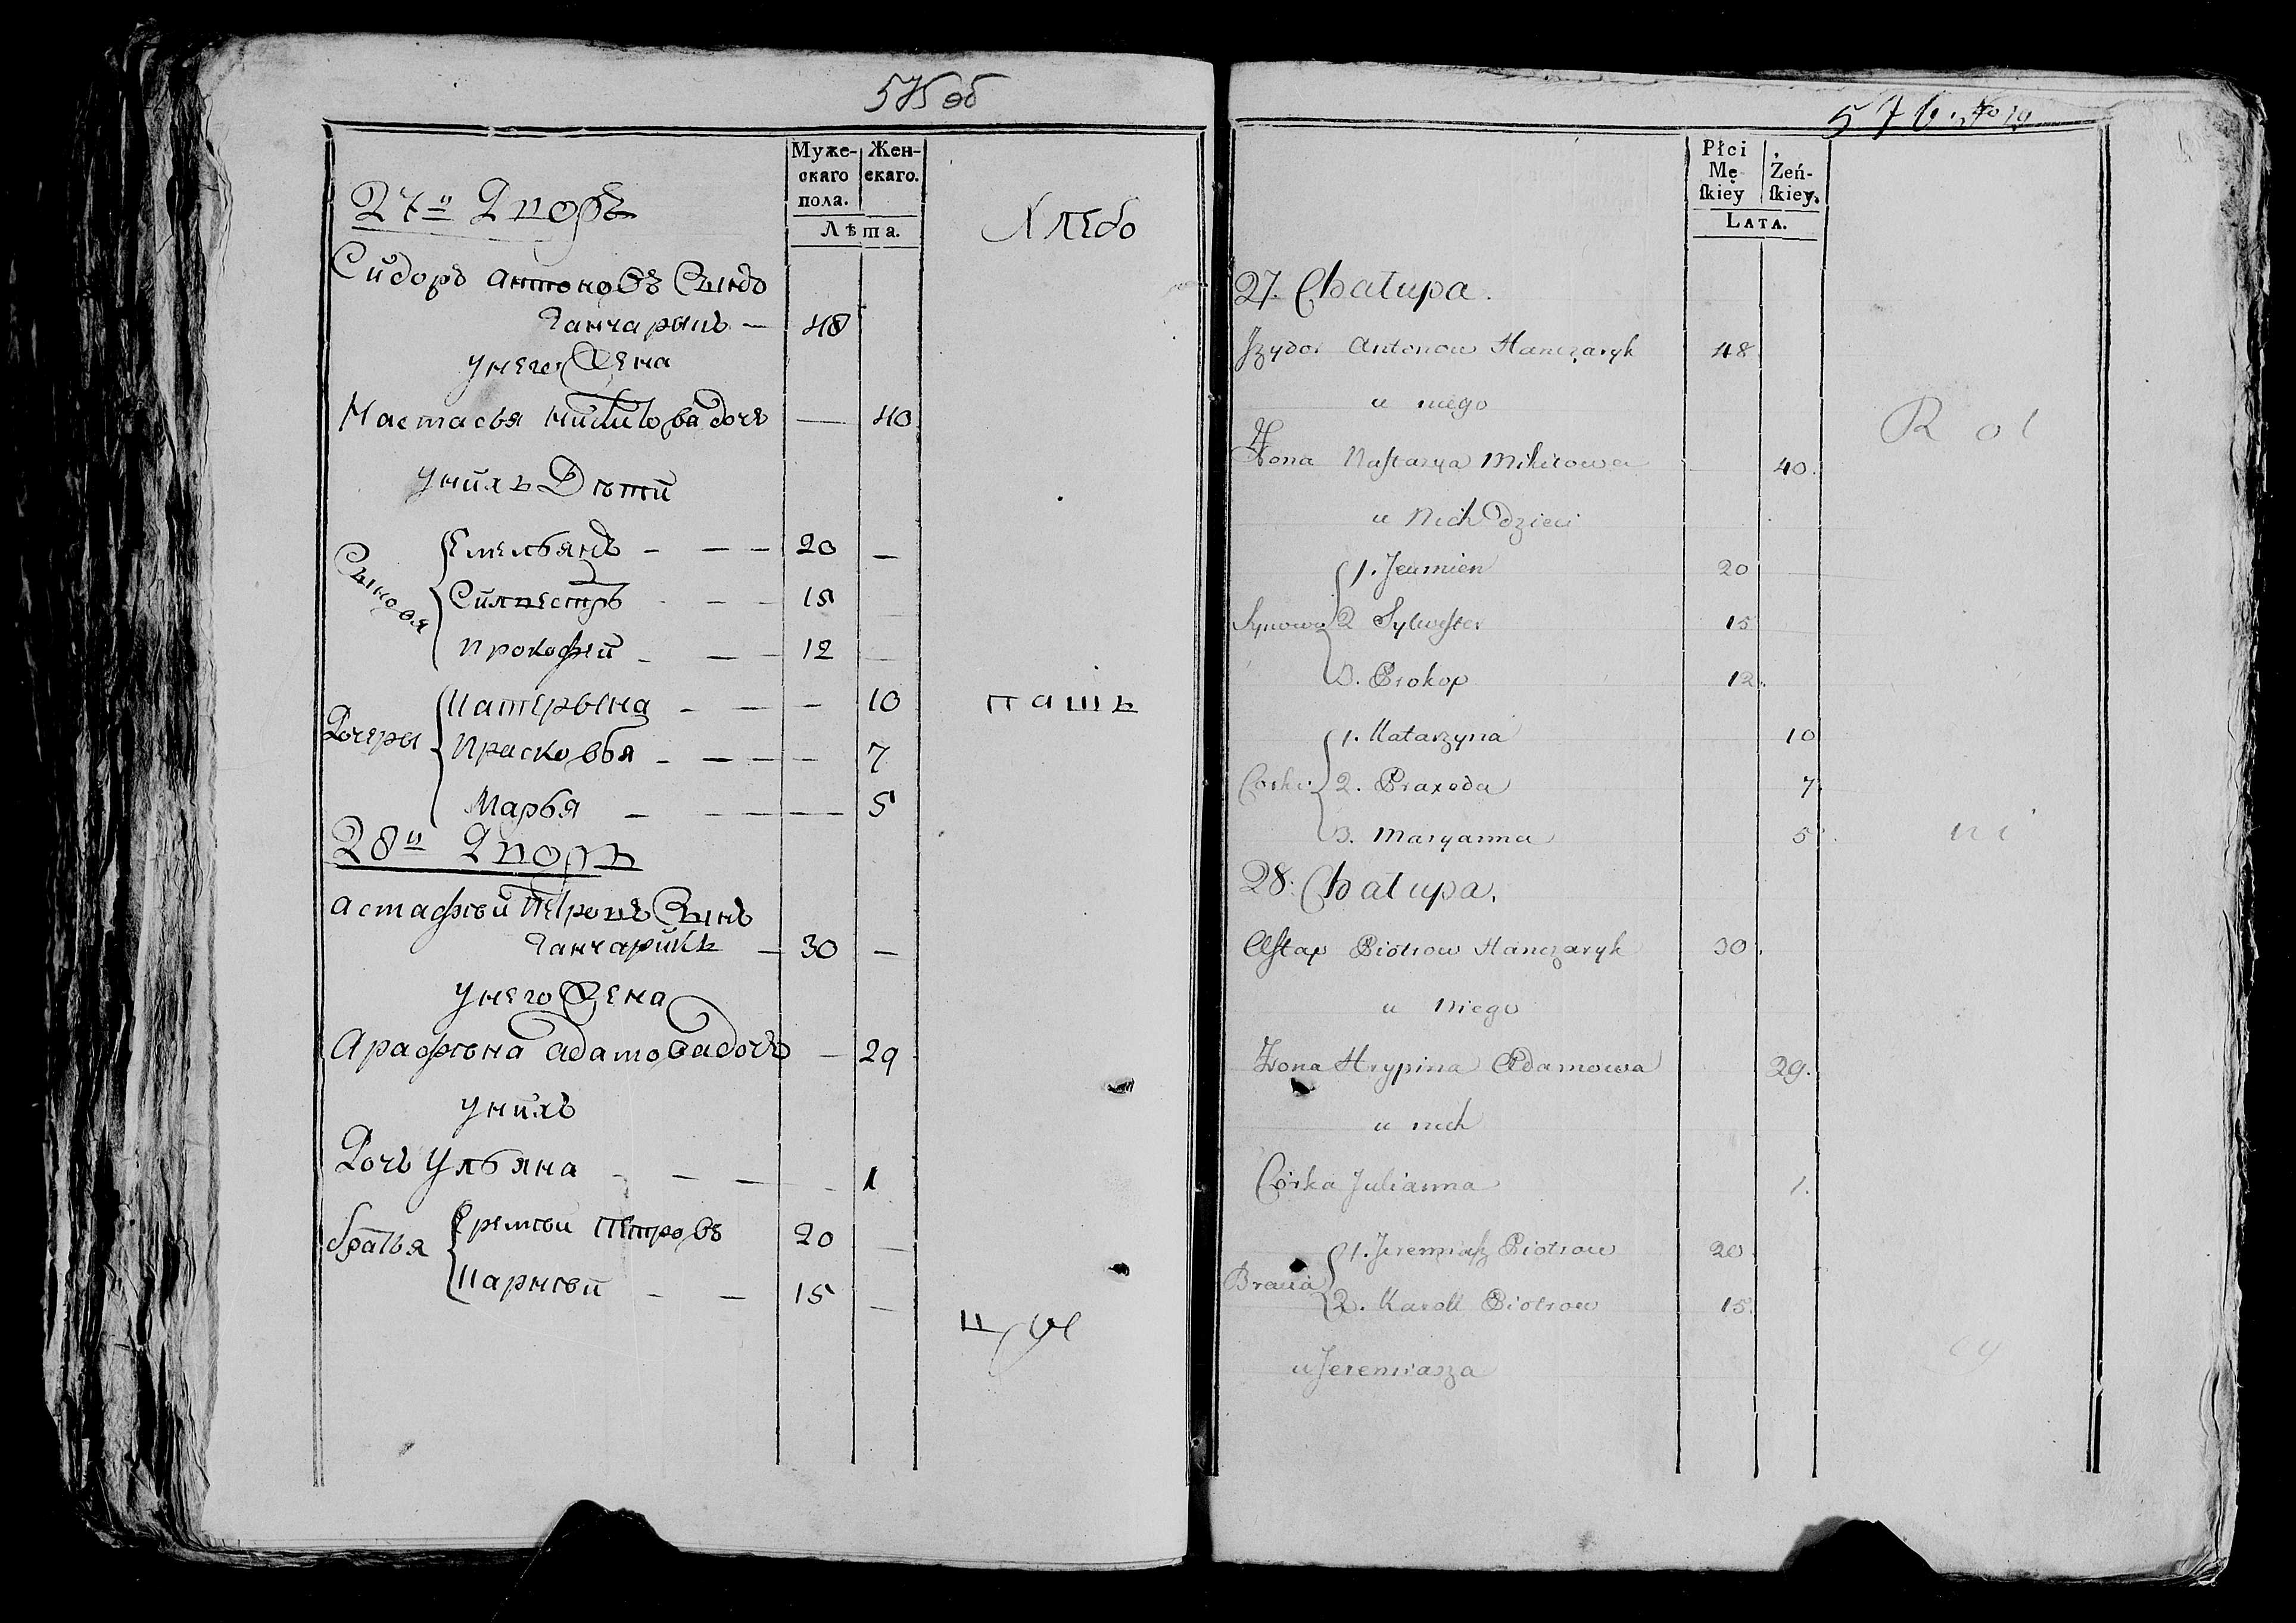 575 об
Муже-
скаго
пола.
Жен-
скаго.
Лѣта.
27й Дворъ
Хлебо
Сидоръ Антоновъ Сынъ
Ганчарыкъ — 48
у него Жена
Настасья Микитова дочь — 40
у нихъ Дѣти
Сыновья
Емельянъ - — — 20 —
Силвестръ - — — 15 —
Прокофей - — — 12 —
пашъ
Дочеры
Катерына — — — 10
Прасковья - — — — 7
Марья — — — — 5
28й Дворъ
Астафѣй Петровъ Сынъ
Ганчарикъ — 30 —
у него Жена
Арафѣна Адамова дочь — 29
у нихъ
Дочь Ульяна — — — - 1
братья
Еремѣй Петровъ 20 —
Карнѣй — — 15 —
576.
Płci
Mę
skiey
Żeń-
skiey.
LATA.
27. Chałupa.
Jzydor Antonow Hanczaryk 48
u niego
Rol
Żona Nastazya Mikitowa 40.
u Nich dzieci
Synowie
1. Jeumien 20
2 Sylwester 15
3. Prokop 12.
Corki
1. Katarzyna 10
2. Praxeda 7.
3. Maryanna 5.
ni
28. Chałupa.
Astap Piotrow Hanczaryk 30.
u Niego
Żona Hrypina Adamowa 29.
u nich
Córka Julianna 1.
Bracia
1. Jeremiasz Piotrow 20.
2. Karoll Piotrow 15.
cy
u Jeremiasza